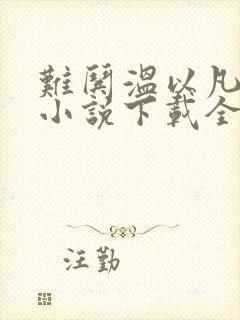 難鬨溫以凡
小說下載全
汪勤